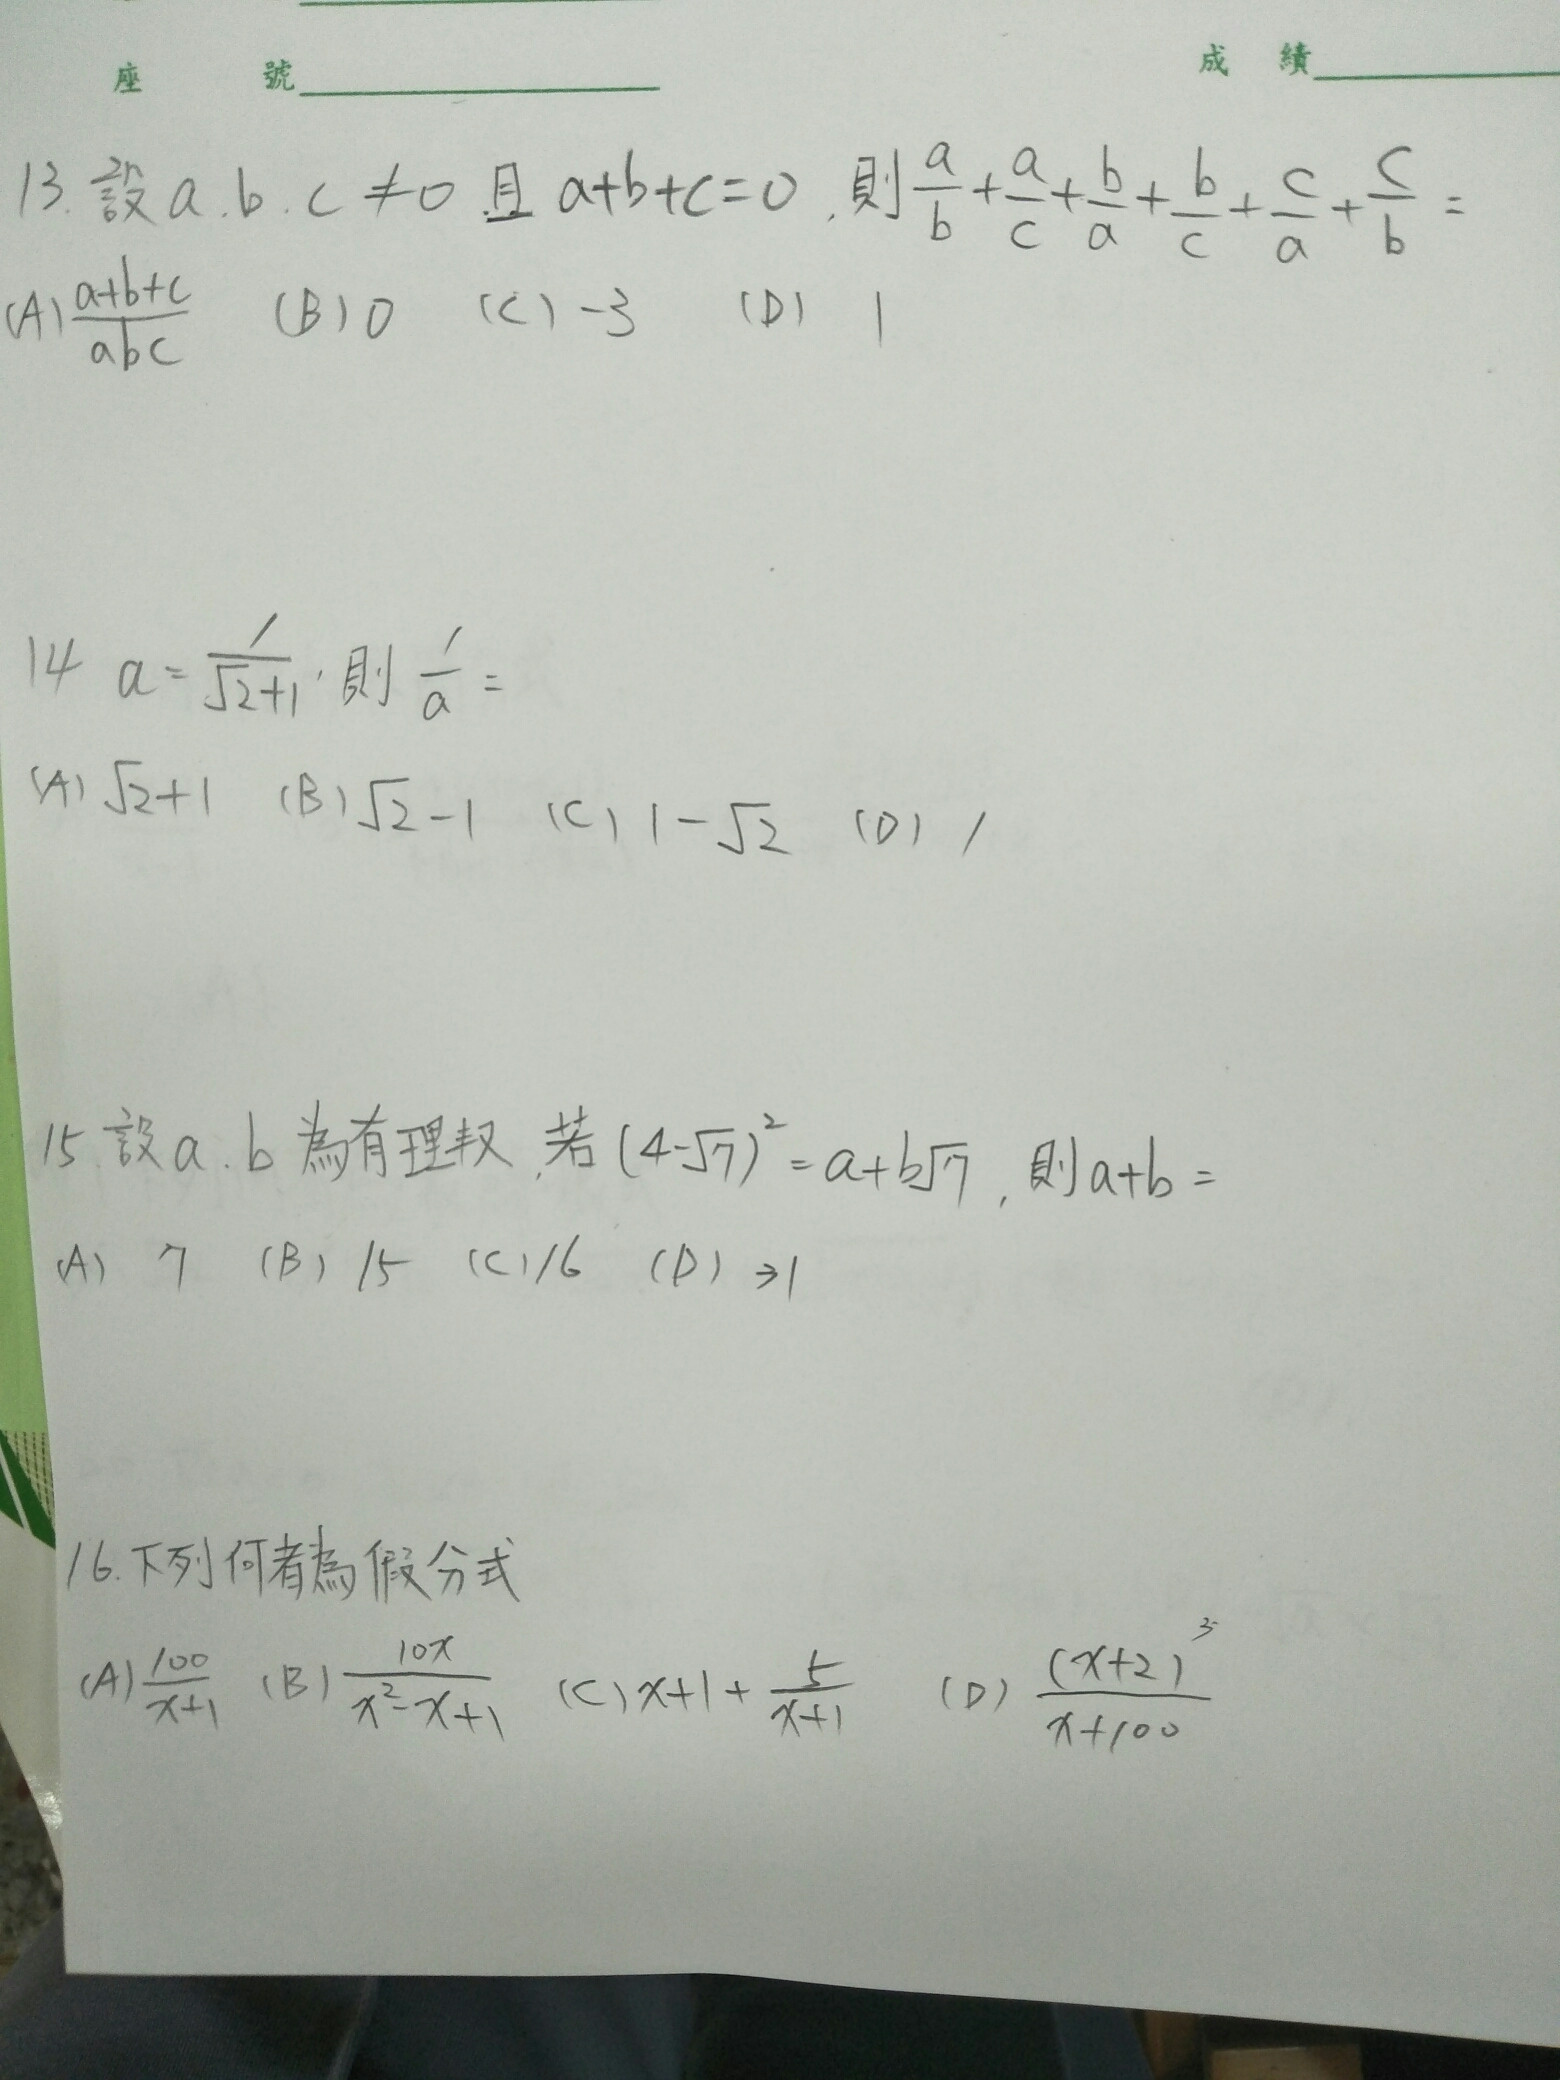 座 號 成 績
13. 設 a.b.c ≠0 且 a+b+c=0, 則 a/b + a/c + b/a + b/c + c/a + c/b =
(A) (a+b+c)/(abc) (B) 0 (C) -3 (D) 1
14 a = 1/(√2+1), 則 1/a =
(A) √2+1 (B) √2-1 (C) 1-√2 (D) 1
15. 設 a.b 為有理数, 若 (4-√7)² = a+b√7, 則 a+b =
(A) 7 (B) 15 (C) 16 (D) 31
16. 下列何者為假分式
(A) 100/(x+1) (B) 10x/(x²-x+1) (C) x+1+ 5/(x+1) (D) (x+2)³/(x+100)